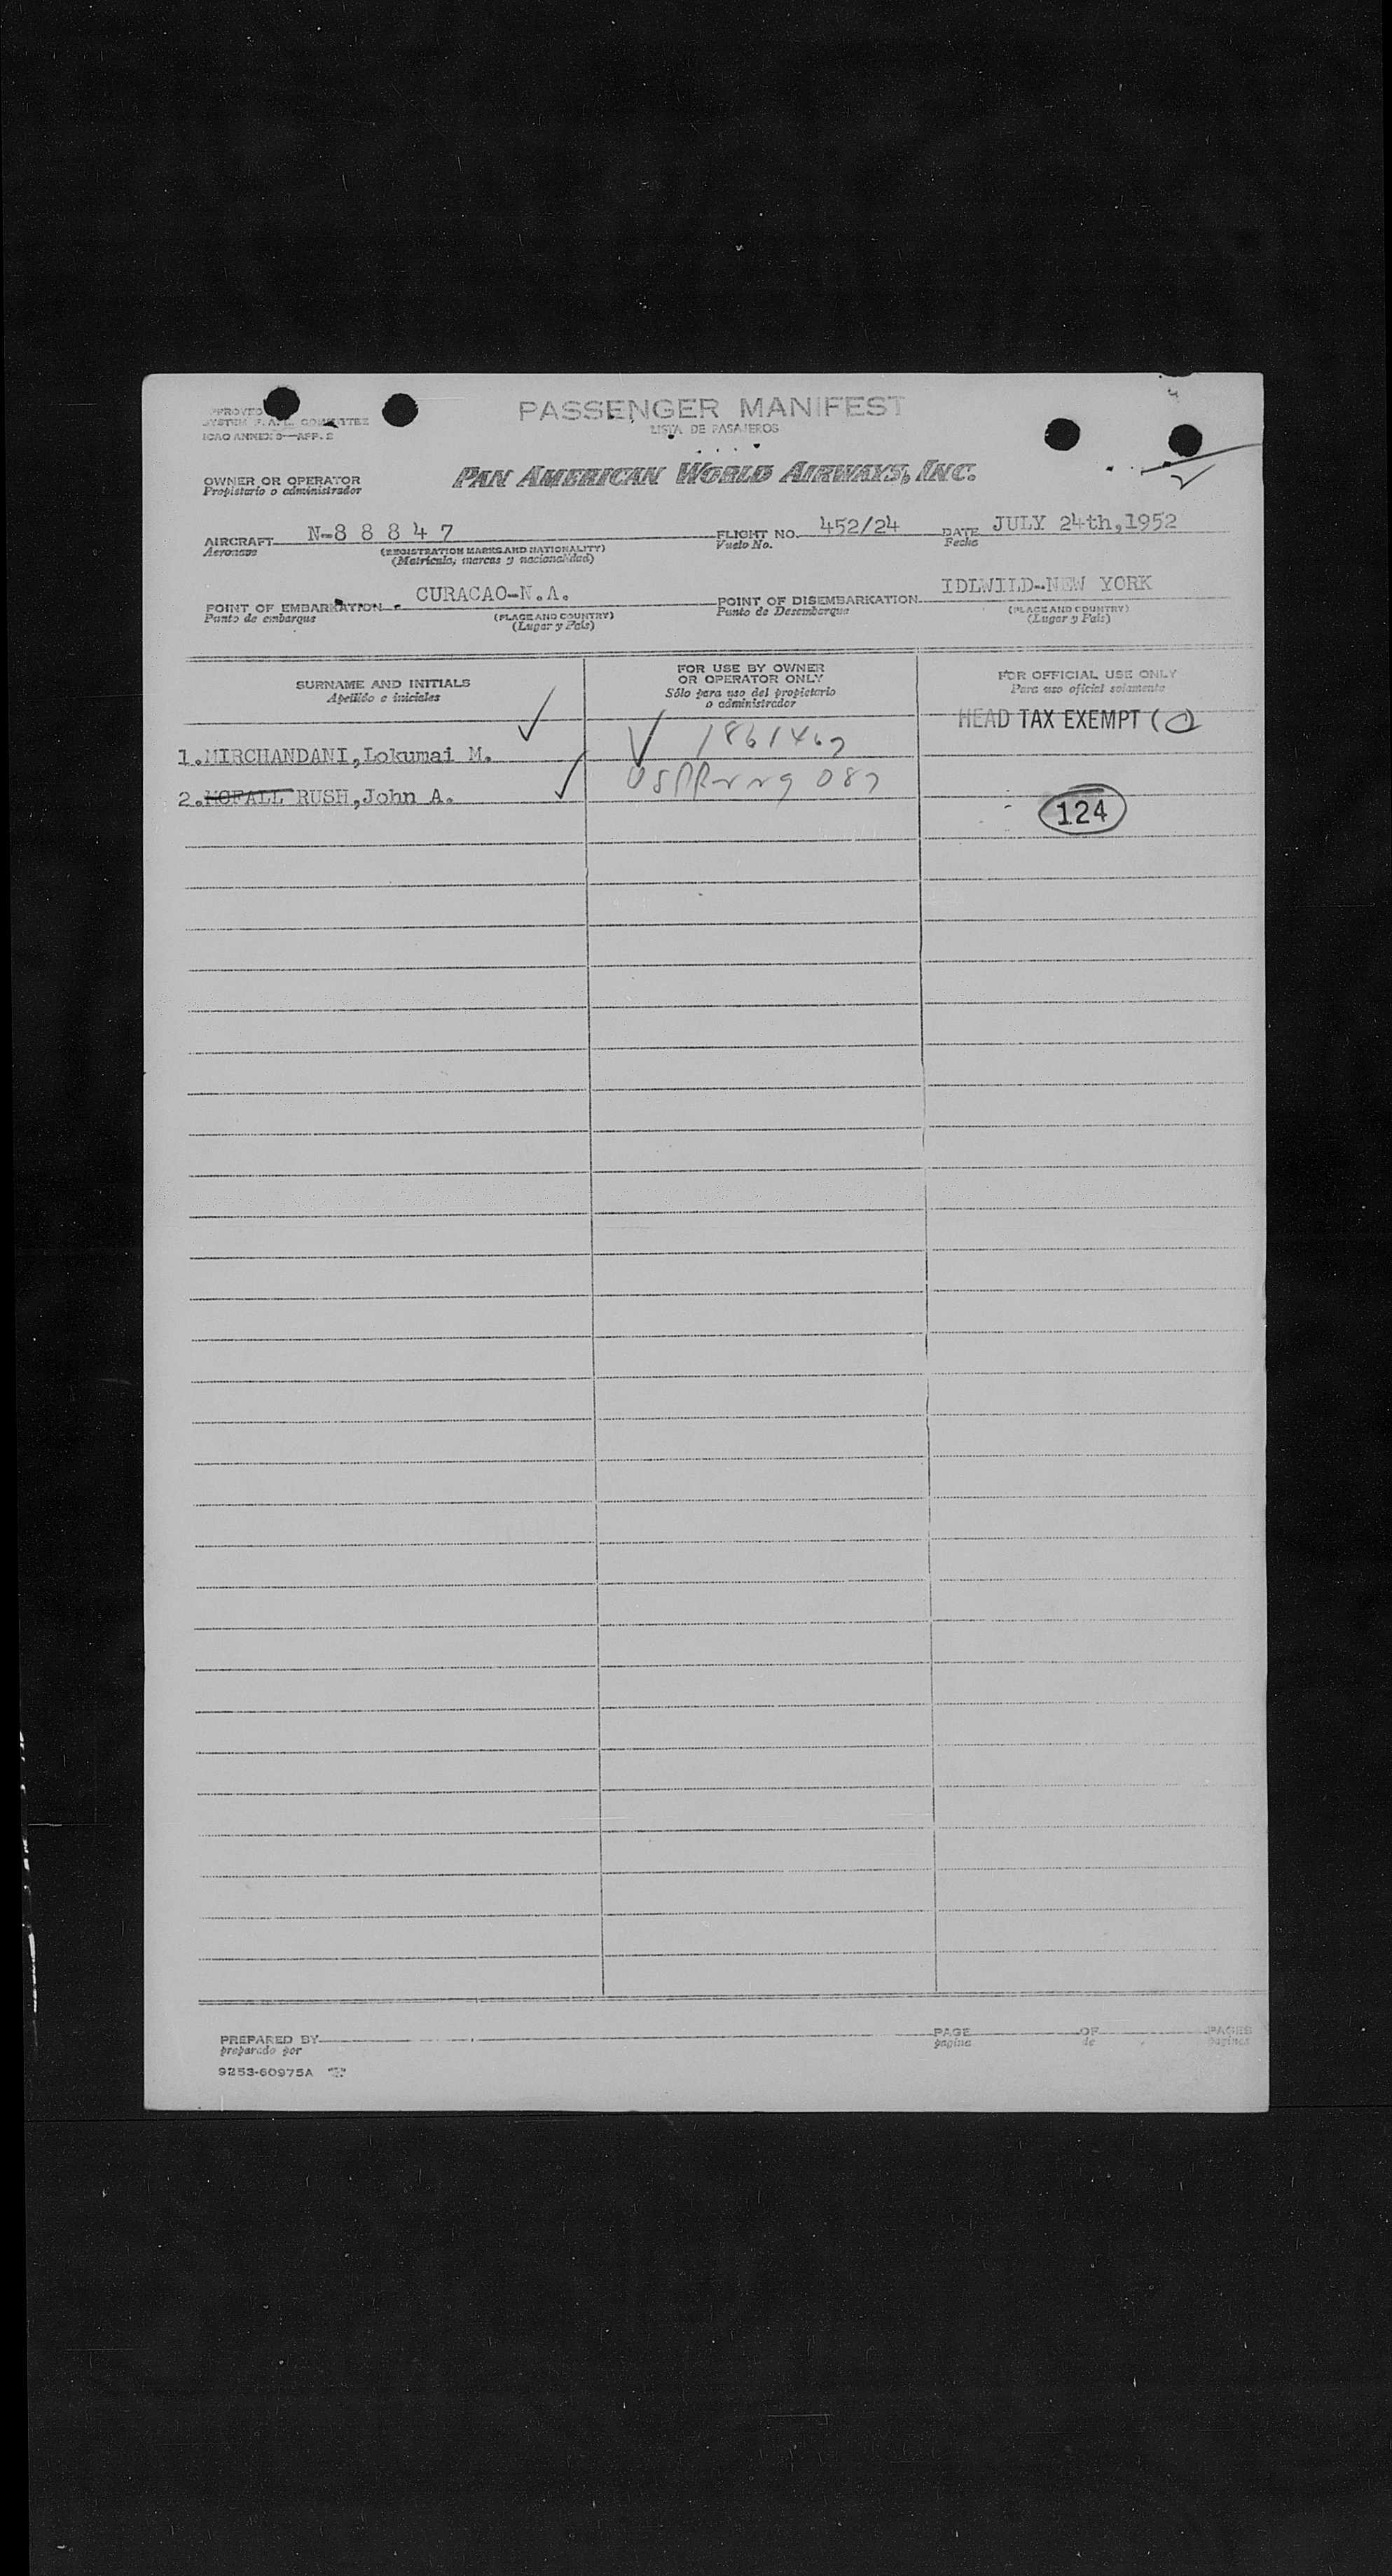 PASSENGER MANIFEST
LISTA DE PASAJEROS
ICAO ANNEX 9—APP. 2
OWNER OR OPERATOR
Propietario o administrador
PAN AMERICAN WORLD AIRWAYS, INC.
AIRCRAFT N-8 8 8 4 7 FLIGHT NO. 452/24 DATE JULY 24th,1952
Aeronave (REGISTRATION MARKS AND NATIONALITY) Vuelo No. Fecha
(Matrícula, marcas y nacionalidad)
POINT OF EMBARKATION CURACAO-N.A. POINT OF DISEMBARKATION IDLWILD-NEW YORK
Punto de embarque (PLACE AND COUNTRY) Punto de Desembarque (PLACE AND COUNTRY)
(Lugar y País) (Lugar y País)
SURNAME AND INITIALS
Apellido e iniciales
FOR USE BY OWNER
OR OPERATOR ONLY
Sólo para uso del propietario
o administrador
FOR OFFICIAL USE ONLY
Para uso oficial solamente
HEAD TAX EXEMPT
1.MIRCHANDANI,Lokumai M. 1861467
2. RUSH,John A. 087
124
PREPARED BY PAGE OF PAGES
preparado por pagina de paginas
9253-60975A